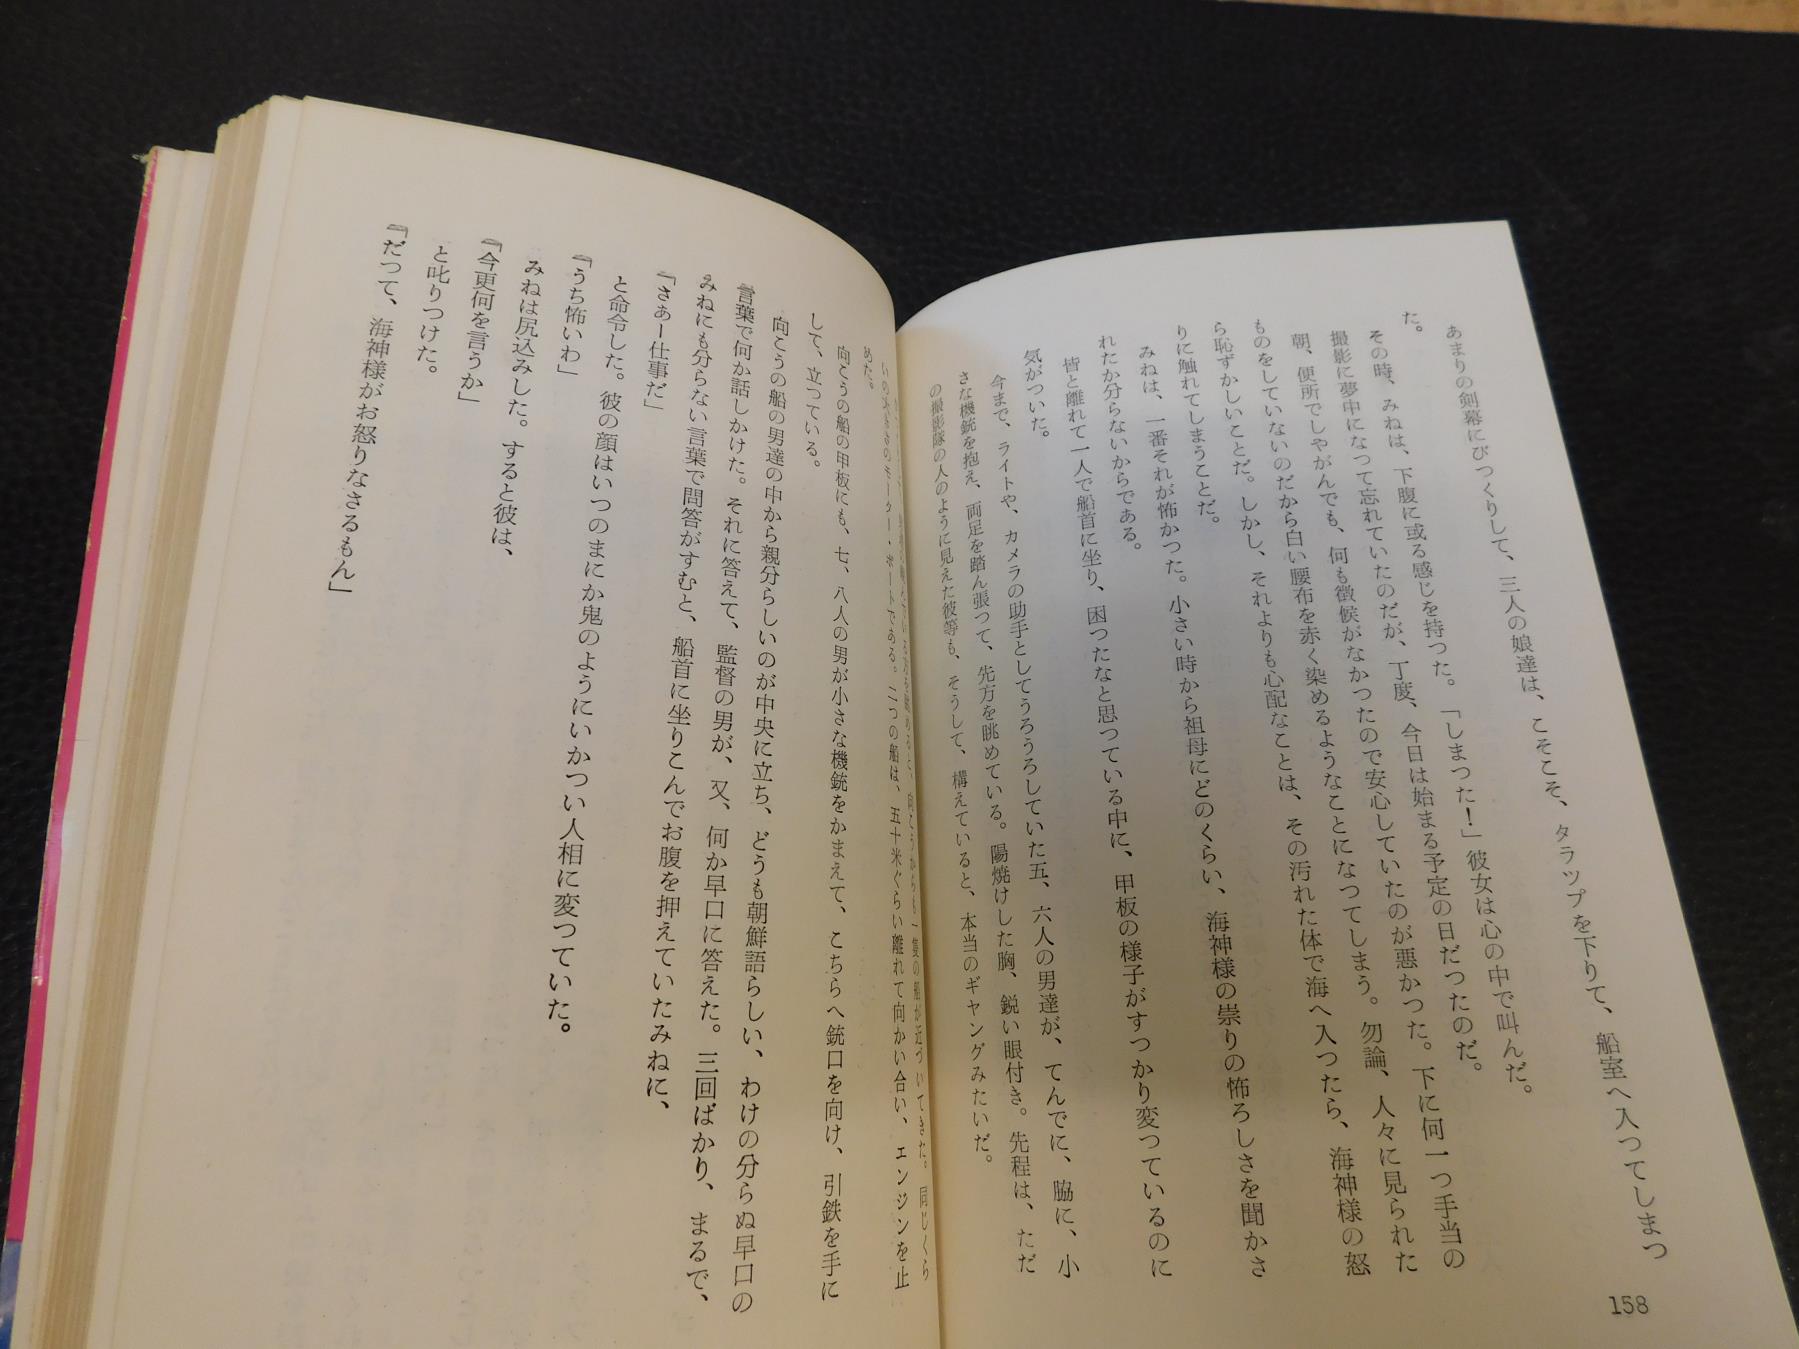 あまりの剣幕にびつくりして、三人の娘達は、こそこそ、タラツプを下りて、船室へ入つてしまつ
た。
その時、みねは、下腹に或る感じを持つた。「しまつた！」彼女は心の中で叫んだ。
撮影に夢中になつて忘れていたのだが、丁度、今日は始まる予定の日だつたのだ。
朝、便所でしやがんでも、何も徴候がなかつたので安心していたのが悪かつた。下に何一つ手当の
ものをしていないのだから白い腰布を赤く染めるようなことになつてしまう。勿論、人々に見られた
ら恥ずかしいことだ。しかし、それよりも心配なことは、その汚れた体で海へ入つたら、海神様の怒
りに触れてしまうことだ。
みねは、一番それが怖かつた。小さい時から祖母にどのくらい、海神様の祟りの怖ろしさを聞かさ
れたか分らないからである。
皆と離れて一人で船首に坐り、困つたなと思つている中に、甲板の様子がすつかり変つているのに
気がついた。
今まで、ライトや、カメラの助手としてうろうろしていた五、六人の男達が、てんでに、脇に、小
さな機銃を抱え、両足を踏ん張つて、先方を眺めている。陽焼けした胸、鋭い眼付き。先程は、ただ
の撮影隊の人のように見えた彼等も、そうして、構えていると、本当のギャングみたいだ。
向こうからも一隻の船が近づいてきた。同じくら
いの大きさのモーター・ボートである。二つの船は、五十米ぐらい離れて向かい合い、エンジンを止
めた。
向こうの船の甲板にも、七、八人の男が小さな機銃をかまえて、こちらへ銃口を向け、引鉄を手に
して、立つている。
向こうの船の男達の中から親分らしいのが中央に立ち、どうも朝鮮語らしい、わけの分らぬ早口の
言葉で何か話しかけた。それに答えて、監督の男が、又、何か早口に答えた。三回ばかり、まるで、
みねにも分らない言葉で問答がすむと、船首に坐りこんでお腹を押えていたみねに、
「さぁー仕事だ」
と命令した。彼の顔はいつのまにか鬼のようにいかつい人相に変つていた。
「うち怖いわ」
みねは尻込みした。すると彼は、
「今更何を言うか」
と叱りつけた。
「だつて、海神様がお怒りなさるもん」
158